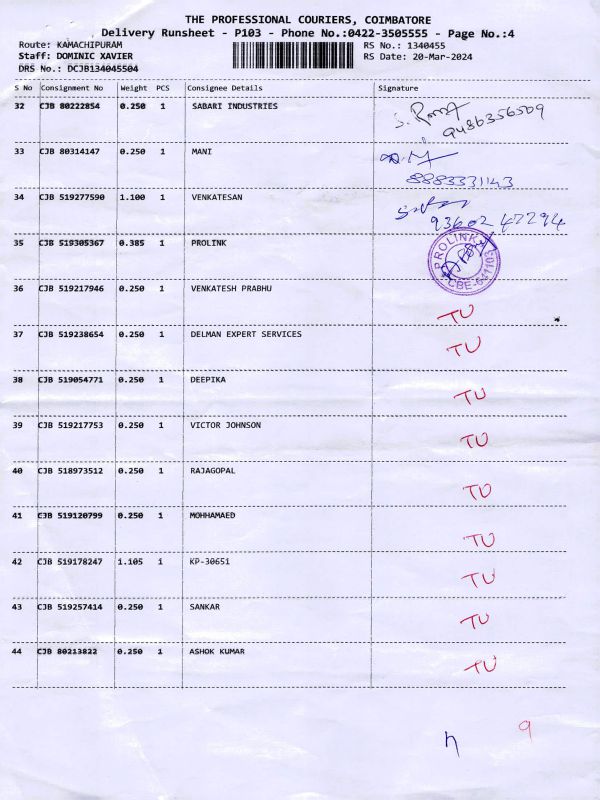 THE PROFESSIONAL COURIERS, COIMBATORE
Delivery Runsheet - P103 - Phone No.:0422-3505555 - Page No.:4
Route: KAMACHIPURAM RS No.: 1340455
Staff: DOMINIC XAVIER RS Date: 20-Mar-2024
DRS No.: DCJB134045504
S No Consignment No Weight PCS Consignee Details Signature
32 CJB 80222854 0.250 1 SABARI INDUSTRIES
9486356509
33 CJB 80314147 0.250 1 MANI
8883331143
34 CJB 519277590 1.100 1 VENKATESAN
93602 47294
35 CJB 519305367 0.385 1 PROLINK
PROLINK
CBE-641103
36 CJB 519217946 0.250 1 VENKATESH PRABHU
TU
37 CJB 519238654 0.250 1 DELMAN EXPERT SERVICES
TU
38 CJB 519054771 0.250 1 DEEPIKA
TU
39 CJB 519217753 0.250 1 VICTOR JOHNSON
TU
40 CJB 518973512 0.250 1 RAJAGOPAL
TU
41 CJB 519120799 0.250 1 MOHHAMAED
TU
42 CJB 519178247 1.105 1 KP-30651
TU
43 CJB 519257414 0.250 1 SANKAR
TU
44 CJB 80213822 0.250 1 ASHOK KUMAR
TU
9